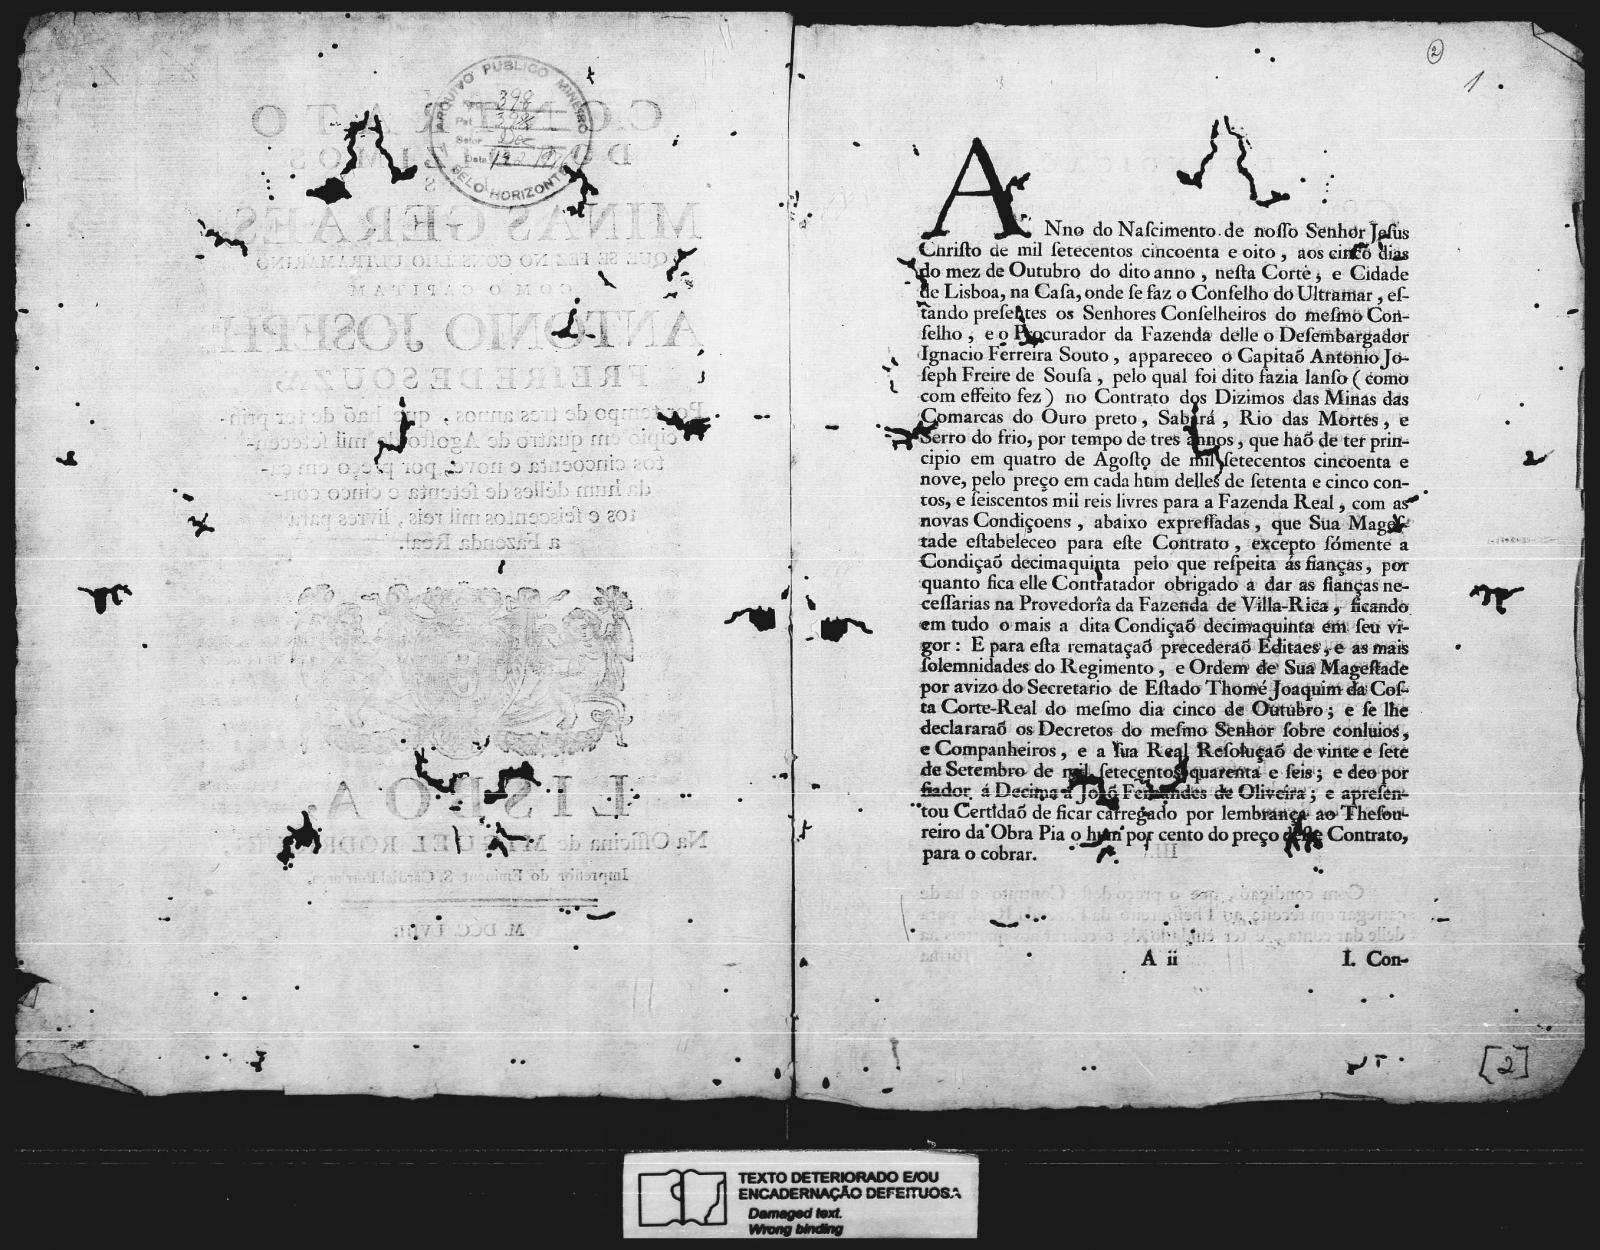 ARQUIVO PUBLICO MINEIRO
398
Pat. 398
Setor Doc
Data
BELO HORIZONTE
CONTRATO
DOS DIZIMOS
MINAS GERAES,
QUE SE FEZ NO CONSELHO ULTRAMARINO
COM O CAPITAM
ANTONIO JOSEPH
FREIRE DE SOUZA,
Por tempo de tres annos, que haõ de ter prin-
cipio em quatro de Agoſto de mil ſetecen-
tos cincoenta e nove, por preço em ca-
da hum delles de ſetenta e cinco con-
tos e ſeiscentos mil reis, livres para
a Fazenda Real.
LISBOA,
Na Officina de MIGUEL RODRIGUES,
Impreſſor do Eminent. S. Cardial Patriarca.
M. DCC. LVIII.
2
1
ANno do Naſcimento de noſſo Senhor Jeſus
Chriſto de mil ſetecentos cincoenta e oito, aos cinco dias
do mez de Outubro do dito anno, neſta Corte, e Cidade
de Lisboa, na Caſa, onde ſe faz o Conſelho do Ultramar, eſ-
tando preſentes os Senhores Conſelheiros do meſmo Con-
ſelho, e o Procurador da Fazenda delle o Deſembargador
Ignacio Ferreira Souto, appareceo o Capitaõ Antonio Jo-
ſeph Freire de Souſa, pelo qual foi dito fazia lanſo (como
com effeito fez) no Contrato dos Dizimos das Minas das
Comarcas do Ouro preto, Sabará, Rio das Mortes, e
Serro do frio, por tempo de tres annos, que haõ de ter prin-
cipio em quatro de Agoſto de mil ſetecentos cincoenta e
nove, pelo preço em cada hum delles de ſetenta e cinco con-
tos, e ſeiscentos mil reis livres para a Fazenda Real, com as
novas Condiçoens, abaixo expreſſadas, que Sua Mageſ-
tade eſtabeleceo para eſte Contrato, excepto ſómente a
Condiçaõ decimaquinta pelo que reſpeita ás fianças, por
quanto fica elle Contratador obrigado a dar as fianças ne-
ceſſarias na Provedorîa da Fazenda de Villa-Rica, ficando
em tudo o mais a dita Condiçaõ decimaquinta em ſeu vi-
gor: E para eſta remataçaõ precederaõ Editaes, e as mais
ſolemnidades do Regimento, e Ordem de Sua Mageſtade
por avizo do Secretario de Eſtado Thomé Joaquim da Coſ-
ta Corte-Real do meſmo dia cinco de Outubro; e ſe lhe
declararaõ os Decretos do meſmo Senhor ſobre conluios,
e Companheiros, e a ſua Real Reſoluçaõ de vinte e ſete
de Setembro de mil ſetecentos quarenta e ſeis; e deo por
fiador á Decima a Joaõ Fernandes de Oliveira; e apreſen-
tou Certidaõ de ficar carregado por lembrança ao Theſou-
reiro da Obra Pia o hum por cento do preço deſte Contrato,
para o cobrar.
III.
Com condiçaõ, que o preço deſte Contrato ſe ha de
A ii
I. Con-
[2]
TEXTO DETERIORADO E/OU
ENCADERNAÇÃO DEFEITUOSA
Damaged text.
Wrong binding